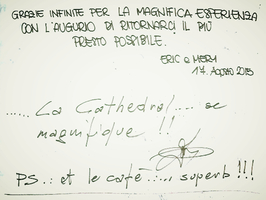 GRAZIE INFINITE PER LA MAGNIFICA ESPERIENZA
CON L'AUGURIO DI RITORNARCI IL PIÙ
PRESTO POSSIBILE.
ERIC e MERY
17. AGOSTO 2015
.....La Cathedral.... se
magnifique !!
PS.: et le café..... superb !!!